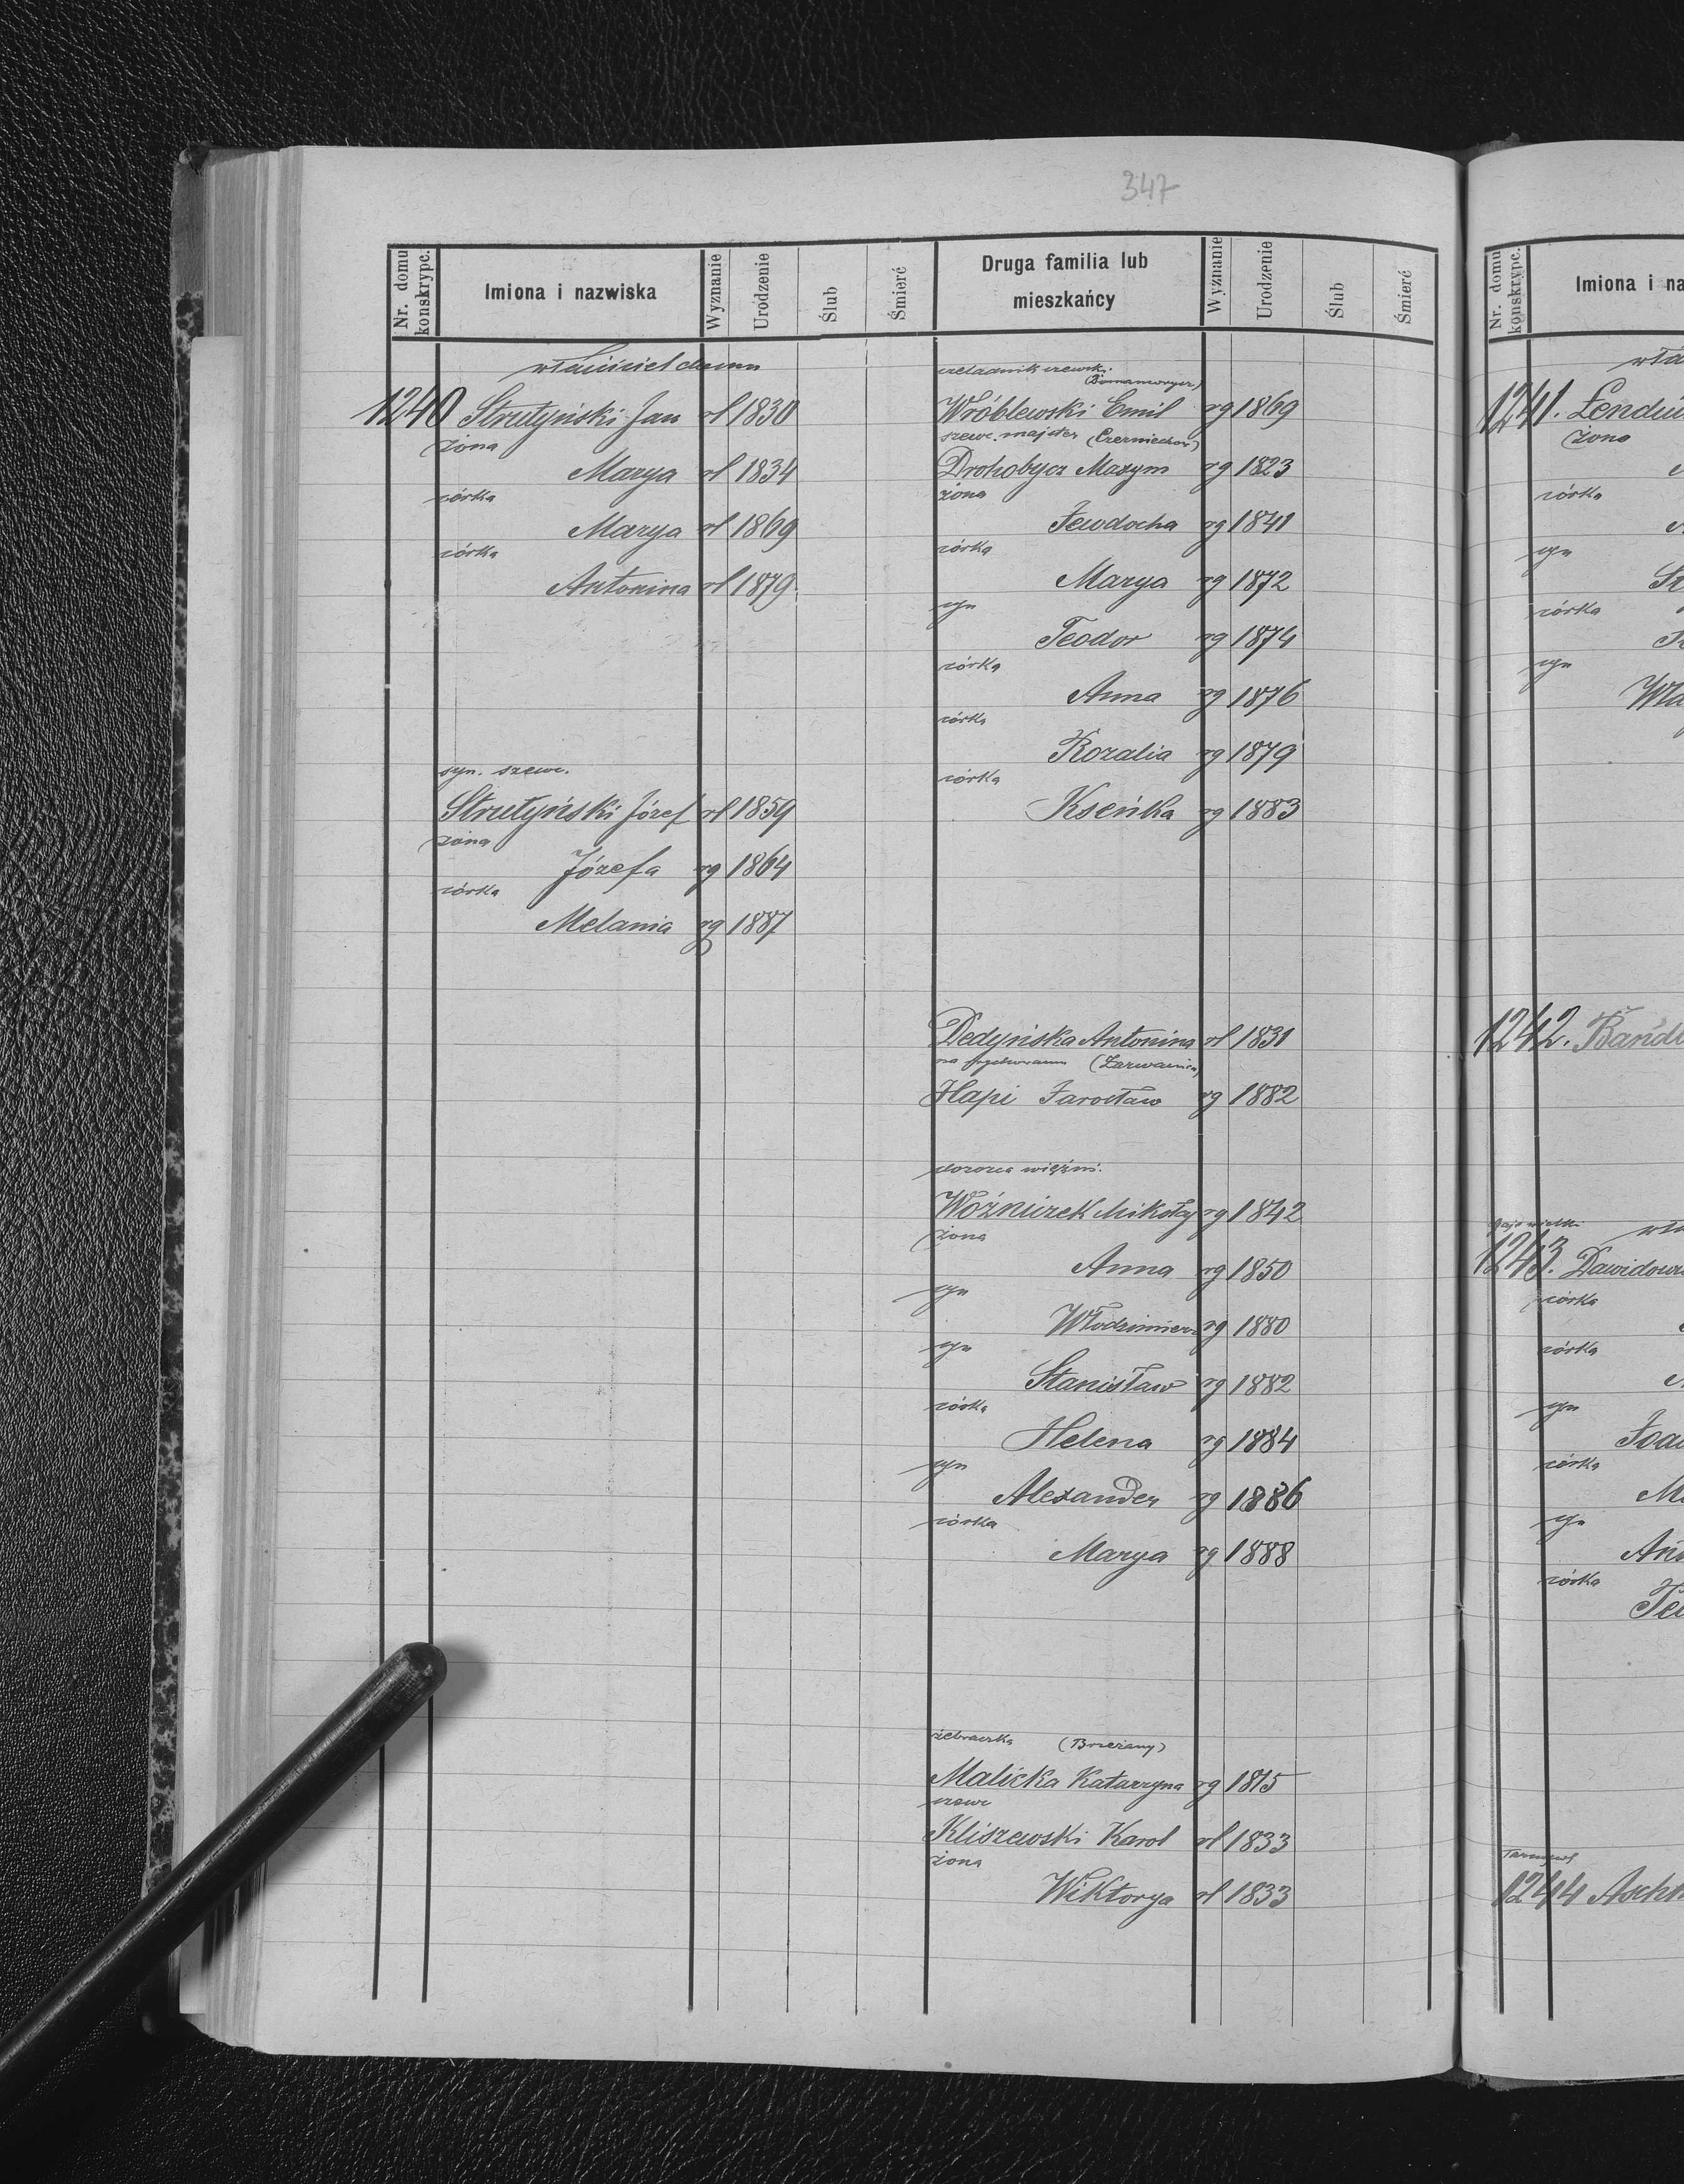 347
Nr. domu konskrypc.
Imiona i nazwiska
Wyznanie
Urodzenie
Ślub
Śmierć
Druga familia lub
mieszkańcy
Wyznanie
Urodzenie
Ślub
Śmierć
właściciel domu
1240 Strutyński Jan rl 1830
żona
Marya rl 1834
córka
Marya rl 1869
córka
Antonina rl 1879
syn. szewc.
Strutyński Józef rl 1859
żona
Józefa rg 1864
córka
Melania rg 1887
czeladnik szewsk.
Wróblewski Emil rg 1869
szewc. majster (Czerniechów)
Drohobycz Maxym rg 1823
żona
Jewdocha rg 1841
córka
Marya rg 1872
syn
Teodor rg 1874
córka
Anna rg 1876
córka
Rozalia rg 1879
córka
Kseńka rg 1883
Dedyńska Antonina rl 1831
(Zarwanica)
Hapi Jarosław rg 1882
dozorca więźni.
Woźniczek Mikołaj rg 1842
żona
Anna rg 1850
syn
Włodzimierz rg 1880
syn
Stanisław rg 1882
córka
Helena rg 1884
syn
Alexander rg 1886
córka
Marya rg 1888
żebraczka (Brzeżany)
Malicka Katarzyna rg 1815
szewc
Kliszewski Karol rl 1833
żona
Wiktorya rl 1833
Nr. domu konskrypc.
Imiona i na
wła
1241. Lendu
żona
córka
syn
St
córka
syn
Wła
1242. Band
1243. Dawidow
córka
córka
syn
Joa
córka
M
syn
An
córka
Te
1244 Ascht